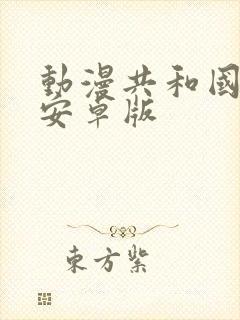 動漫共和國
安卓版
東方紫